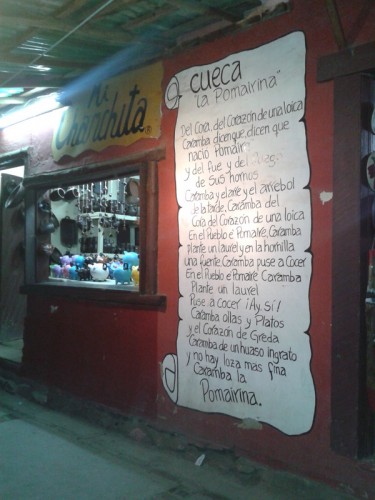 Mi
Chanchita
CUECA
"La Pomairina"
Del Cora, del Corazón de una loica
Caramba, dicen que, dicen que
nació Pomaire
y del fue y del
de sus hornos
Caramba y el aire y el arrebol
de la tarde, Caramba del
Cora del Corazón de una loica
En el Pueblo e Pomaire, Caramba
plante un laurel y en la hornilla
una fuente, Caramba puse a Cocer
En el Pueblo e Pomaire Caramba
Plante un laurel
Puse a Cocer ¡Ay, sí!
Caramba ollas y Platos
y el Corazón de Greda
Caramba de un huaso ingrato
y no hay loza mas fina
Caramba la
Pomairina.